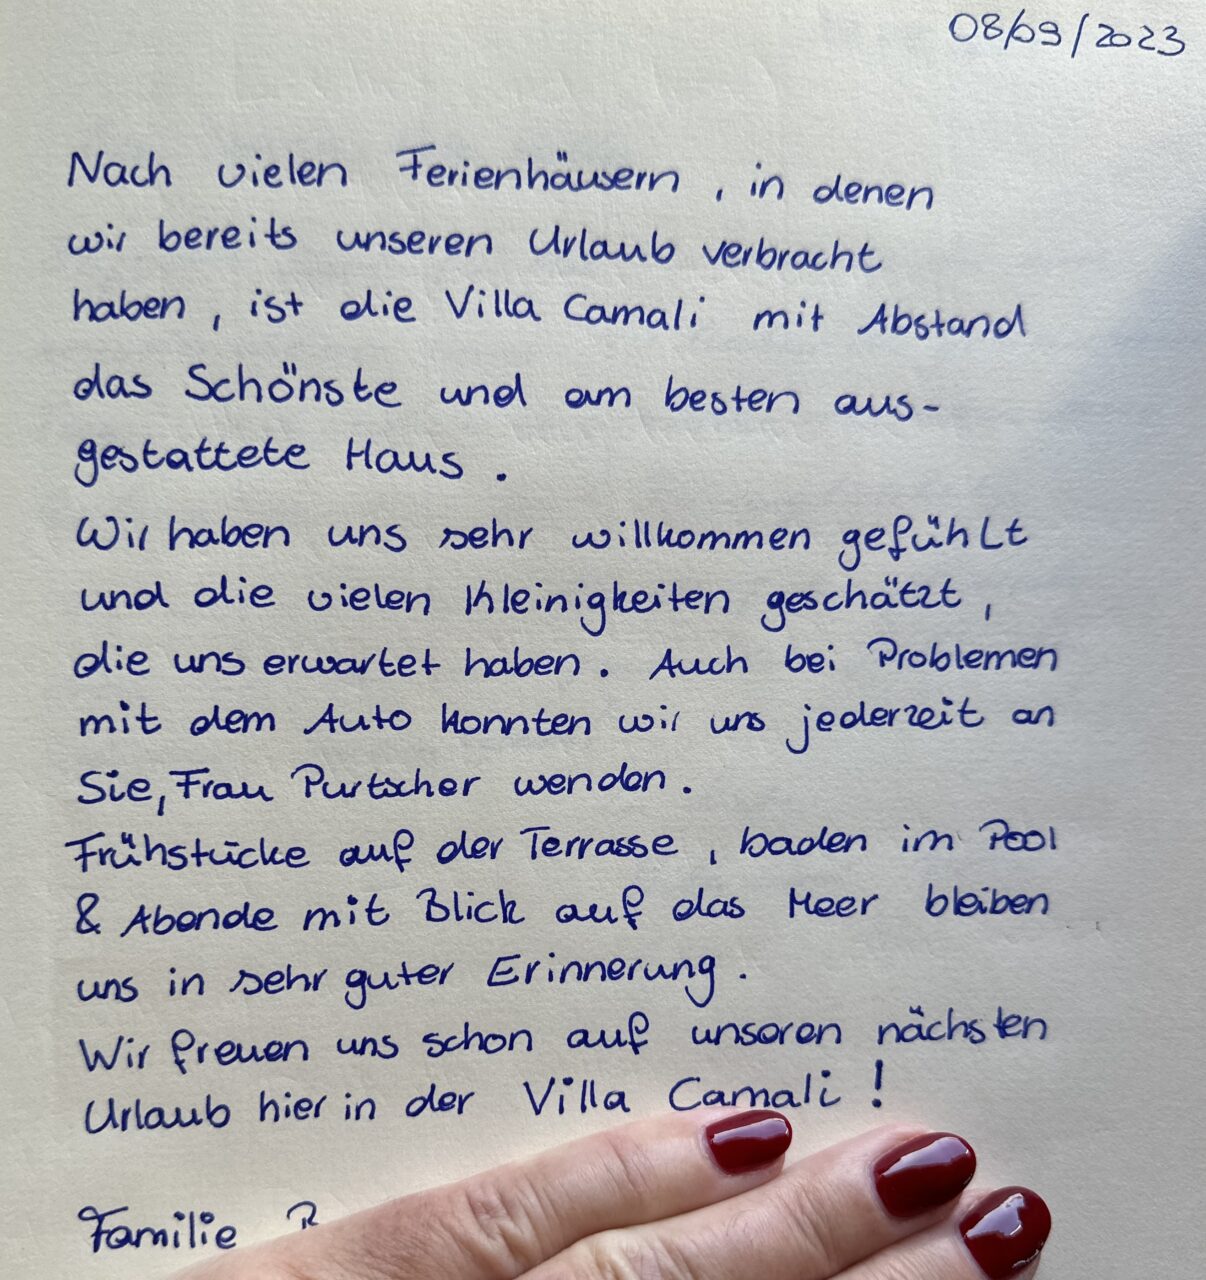 08/09/2023
Nach vielen Ferienhäusern, in denen
wir bereits unseren Urlaub verbracht
haben, ist die Villa Camali mit Abstand
das Schönste und am besten aus-
gestattete Haus.
Wir haben uns sehr willkommen gefühlt
und die vielen Kleinigkeiten geschätzt,
die uns erwartet haben. Auch bei Problemen
mit dem Auto konnten wir uns jederzeit an
Sie, Frau Purtscher wenden.
Frühstücke auf der Terrasse, baden im Pool
& Abende mit Blick auf das Meer bleiben
uns in sehr guter Erinnerung.
Wir freuen uns schon auf unseren nächsten
Urlaub hier in der Villa Camali!
Familie